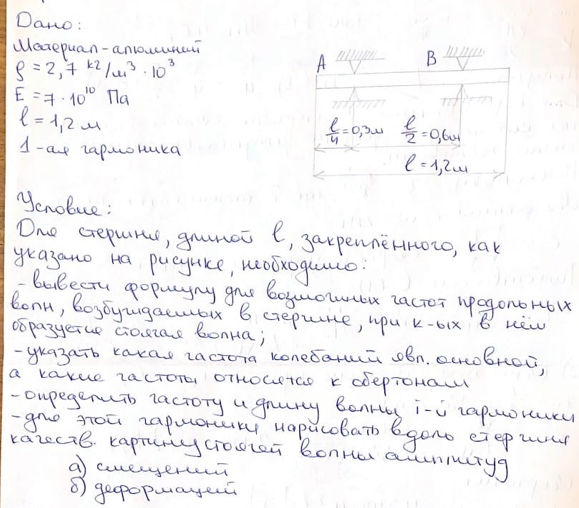 Дано:
Материал - алюминий
ρ = 2,7 кг/м³ · 10³
E = 7 · 10¹⁰ Па
l = 1,2 м
1-ая гармоника
A
B
l/4 = 0,3м
l/2 = 0,6м
l = 1,2м
Условие:
Для стержня, длиной l, закреплённого, как
указано на рисунке, необходимо:
- вывести формулу для возможных частот продольных
волн, возбуждаемых в стержне, при к-ых в нём
образуется стоячая волна;
- указать какая частота колебаний явл. основной,
а какие частоты относятся к обертонам
- определить частоту и длину волны i-й гармоники
- для этой гармоники нарисовать вдоль стержня
качеств. картину стоячей волны амплитуд
а) смещений
б) деформаций